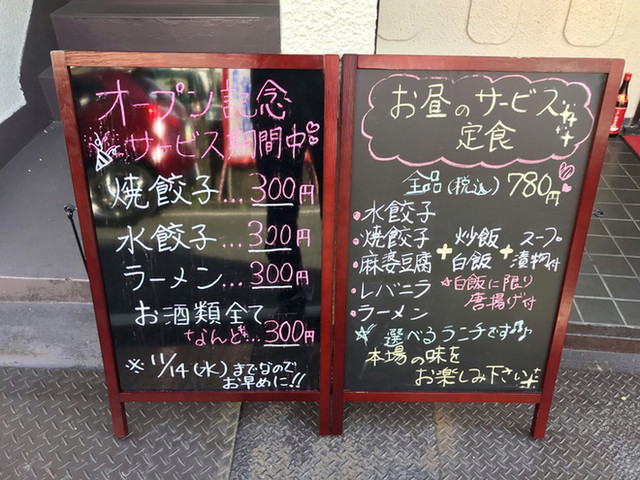 オープン記念
サービス期間中
焼餃子…300円
水餃子…300円
ラーメン…300円
お酒類全て
なんと…300円
※11/14(水)までなので
お早めに!!
お昼のサービス
定食
全品(税込)780円
水餃子
焼餃子
麻婆豆腐
レバニラ
ラーメン
+
炒飯
白飯
+
スープ
漬物付
☆白飯に限り
唐揚げ付
☆選べるランチです♪
本場の味を
お楽しみ下さい